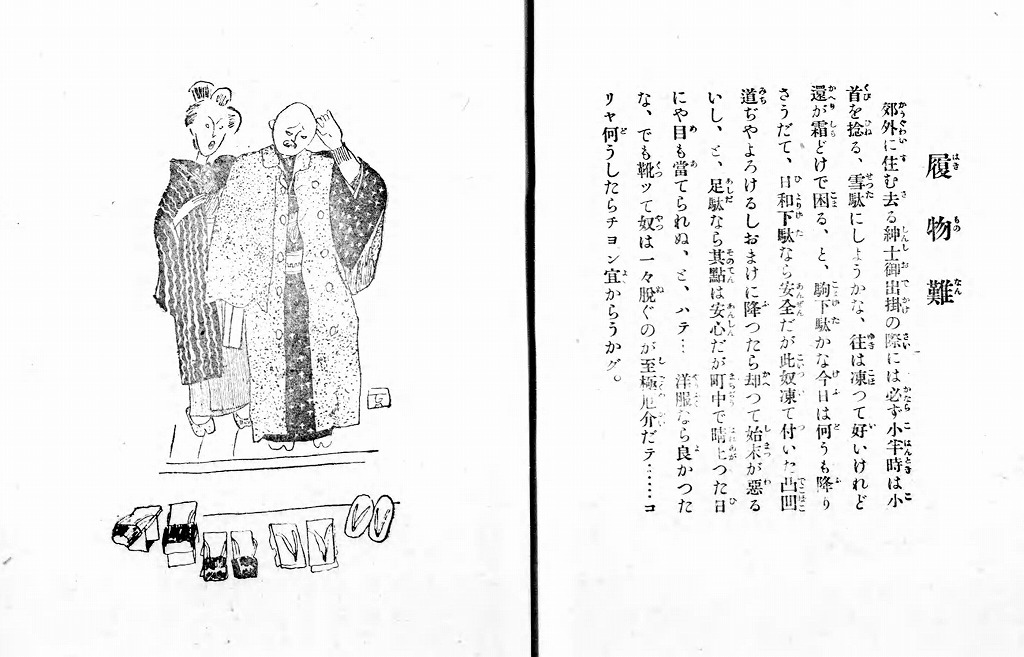 履物難
郊外に住む去る紳士御出掛の際には必ず小半時は小
首を捻る、雪駄にしようかな、往は凍つて好いけれど
還が霜どけで困る、と、駒下駄かな今日は何うも降り
さうだて、日和下駄なら安全だが此奴凍て付いた凸凹
道ぢやよろけるしおまけに降つたら却つて始末が惡る
いし、と、足駄なら其點は安心だが町中で晴上つた日
にや目も當てられぬ、と、ハテ… 洋服なら良かつた
な、でも靴ッて奴は一々脱ぐのが至極厄介だテ……コ
リャ何うしたらチョン宜からうかグ。